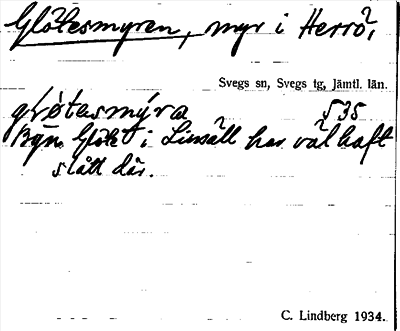 Glötesmyren, myr i Herrö,
Svegs sn, Svegs tg, Jämtl. län.
glø̀tasmýra 535
Byn Glöte i Linsäll har väl haft
slått där.
C. Lindberg 1934.